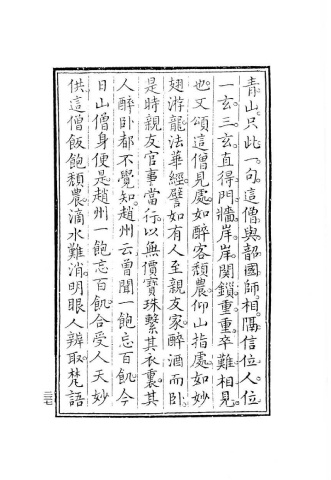 青山。只此一句。這僧與韶國師相隔。信位。人位。
一玄。三玄。直得門牆岸岸。關鎖重重。卒難相見
也。又頌這僧見處。如醉客頹農。仰山指處。如妙
翅游龍。法華經。譬如有人至親友家。醉酒而臥。
是時親友官事當行。以無價寶珠繫其衣裏。其
人醉臥都不覺知。趙州云。曾聞一飽忘百飢。今
日山僧身便是。趙州一飽忘百飢。合受人天妙
供。這僧飯飽頹農。滴水難消。明眼人辨取。梵語
三七